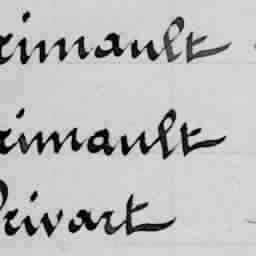 rimault
rimault
Privart